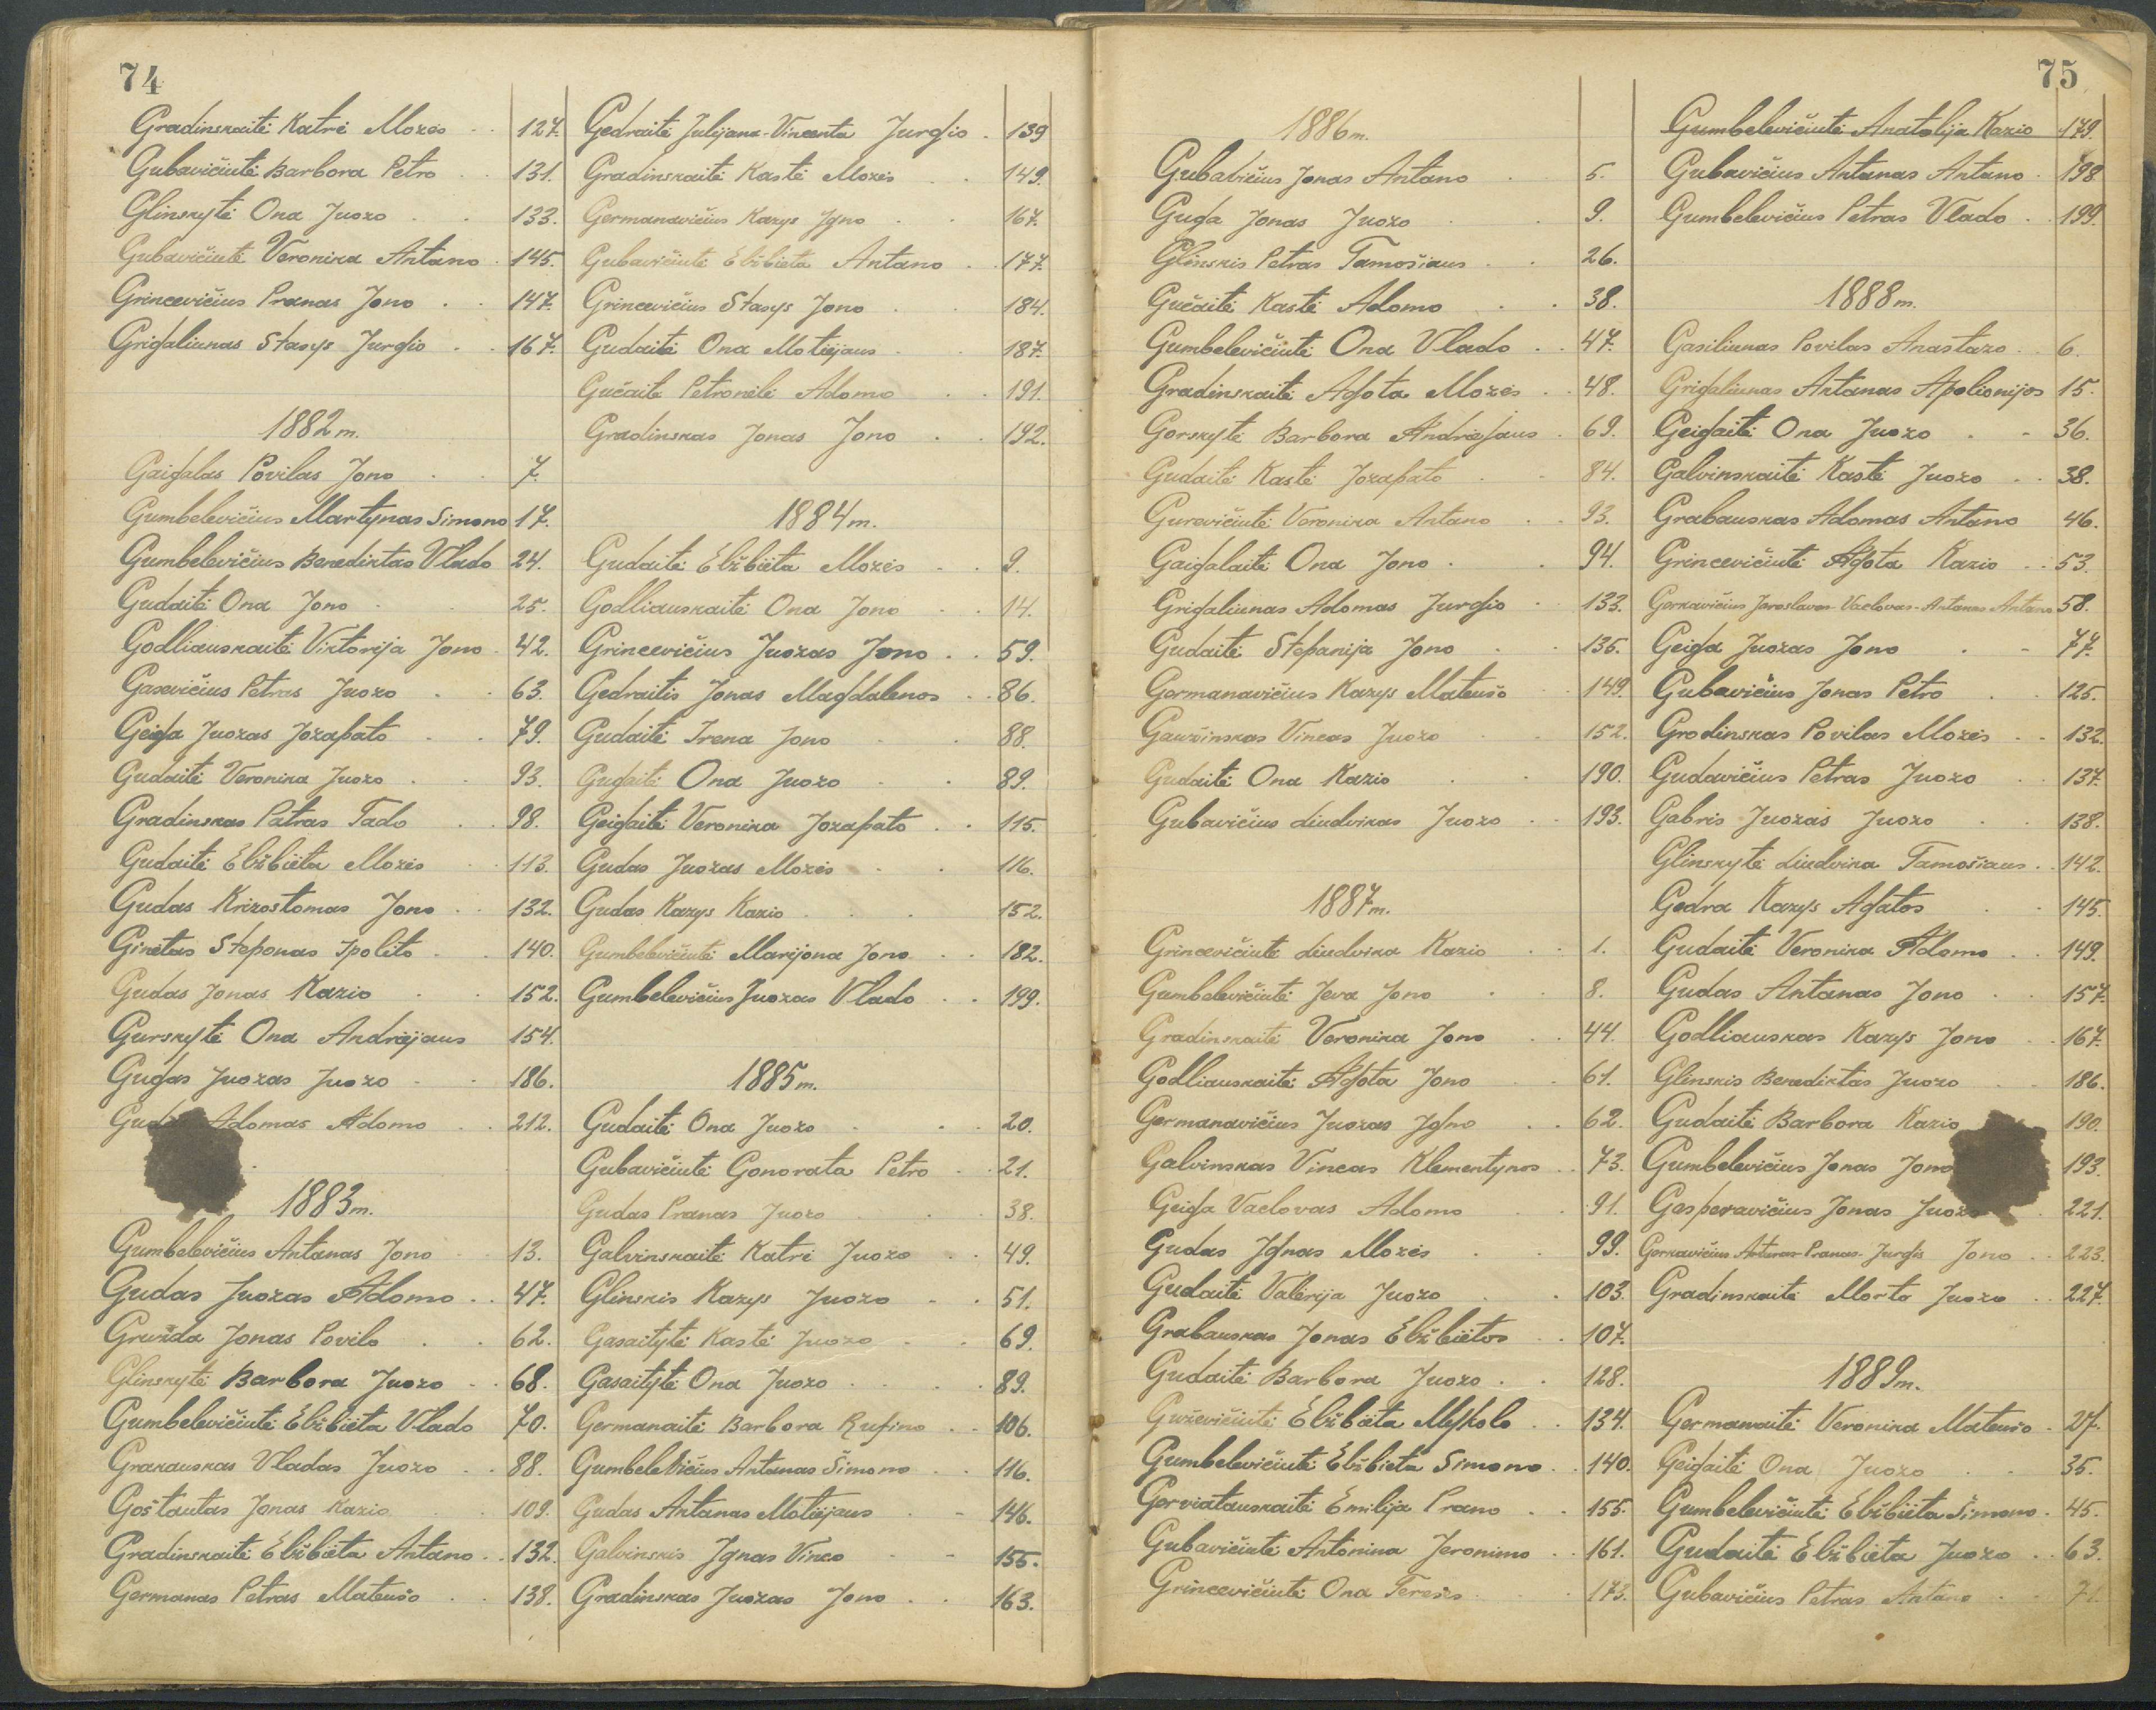 74
Gradinskaitė Katrė Mozės 127.
Gubavičiutė Barbora Petro 131.
Glinskytė Ona Juozo 133.
Gubavičiutė Veronika Antano 145.
Grincevičius Pranas Jono 147.
Grigaliunas Stasys Jurgio 167.
1882 m.
Gaigalas Povilas Jono 7.
Gumbelevičius Martynas Simono 17.
Gumbelevičius Benediktas Vlado 24.
Gudaitė Ona Jono 25.
Godliauskaitė Viktorija Jono 42.
Gasevičius Petras Juozo 63.
Geiga Juozas Jozapato 79.
Gudaitė Veronika Juozo 93.
Gradinskas Petras Tado 98.
Gudaitė Elžbieta Mozės 113.
Gudas Krizostomas Jono 132.
Ginetas Steponas Ipolito 140.
Gudas Jonas Kazio 152.
Gurskytė Ona Andriejaus 154.
Gugas Juozas Juozo 186.
Adomas Adomo 212.
1883 m.
Gumbelevičius Antanas Jono 13.
Gudas Juozas Adomo 47.
Gružda Jonas Povilo 62.
Glinskytė Barbora Juozo 68.
Gumbelevičiutė Elžbieta Vlado 70.
Grakauskas Vladas Juozo 88.
Goštautas Jonas Kazio 109.
Gradinskaitė Elžbieta Antano 132.
Germanas Petras Mateušo 138.
Gedraitė Julijana-Vincenta Jurgio 139
Gradinskaitė Kastė Mozės 149.
Germanavičius Kazys Igno 167.
Gubavičiutė Elžbieta Antano 177.
Grincevičius Stasys Jono 184.
Gudaitė Ona Motiejaus 187.
Gučaitė Petronėlė Adomo 191.
Gradinskas Jonas Jono 192.
1884 m.
Gudaitė Elžbieta Mozės 9.
Godliauskaitė Ona Jono 14.
Grincevičius Juozas Jono 59.
Gedraitis Jonas Magdalenos 86.
Gudaitė Irena Jono 88.
Gugaitė Ona Juozo 89.
Geigaitė Veronika Jozapato 115.
Gudas Juozas Mozės 116.
Gudas Kazys Kazio 152.
Gumbelevičiutė Marijona Jono 182.
Gumbelevičius Juozas Vlado 199.
1885 m.
Gudaitė Ona Juozo 20.
Gubavičiutė Gonorata Petro 21.
Gudas Pranas Juozo 38.
Galvinskaitė Katrė Juozo 49.
Glinskis Kazys Juozo 51.
Gasaitytė Kastė Juozo 69.
Gasaitytė Ona Juozo 89.
Germanaitė Barbora Rufino 106.
Gumbelevičius Antanas Šimono 116.
Gudas Antanas Motiejaus 146.
Galvinskis Ignas Vinco 155.
Gradinskas Juozas Jono 163.
75
1886 m.
Gubavičius Jonas Antano 5.
Guga Jonas Juozo 9.
Glinskis Petras Tamošiaus 26.
Gučaitė Kastė Adomo 38.
Gumbelevičiutė Ona Vlado 47.
Gradinskaitė Agota Mozės 48.
Gorskytė Barbora Andriejaus 69.
Gudaitė Kastė Jozapato 84.
Gurevičiutė Veronika Antano 93.
Gaigalaitė Ona Jono 94.
Grigaliunas Adomas Jurgio 133.
Gudaitė Stepanija Jono 135.
Germanavičius Kazys Mateušo 149.
Gauvinskas Vincas Juozo 152.
Gudaitė Ona Kazio 190.
Gubavičius Liudvikas Juozo 193.
1887 m.
Grincevičiutė Liudvika Kazio 1.
Gumbelevičiutė Jeva Jono 8.
Gradinskaitė Veronika Jono 44.
Godliauskaitė Agota Jono 61.
Germanavičius Juozas Igno 62.
Galvinskas Vincas Klementynos 73.
Geiga Vaclovas Adomo 91.
Gudas Ignas Mozės 99.
Gudaitė Valerija Juozo 103.
Grabauskas Jonas Elžbietos 107.
Gudaitė Barbora Juozo 128.
Guževičiutė Elžbieta Mykolo 134.
Gumbelevičiutė Elžbieta Simono 140.
Gerviatauskaitė Emilija Prano 155.
Gubavičiutė Antonina Jeronimo 161.
Grincevičiutė Ona Teresės 173.
Gumbelevičiutė Anatolija Kazio 179.
Gubavičius Antanas Antano 198
Gumbelevičius Petras Vlado 199.
1888 m.
Gasiliunas Povilas Anastazo 6.
Grigaliunas Antanas Apolionijos 15.
Geigaitė Ona Juozo 36.
Galvinskaitė Kastė Juozo 38.
Grabauskas Adomas Antano 46.
Grincevičiutė Agota Kazio 53.
Gerkavičius Jaroslavas-Vaclovas-Antanas Antano 58.
Geiga Juozas Jono 77.
Gubavičius Jonas Petro 125.
Grodinskas Povilas Mozės 132.
Gudavičius Petras Juozo 137.
Gabris Juozas Juozo 138.
Glinskytė Liudvika Tamošiaus 142.
Gedra Kazys Agatos 145.
Gudaitė Veronika Adomo 149.
Gudas Antanas Jono 157.
Godliauskas Kazys Jono 167.
Glinskis Benediktas Juozo 186.
Gudaitė Barbora Kazio 190.
Gumbelevičius Jonas Jono 193.
Gasperavičius Jonas Juozo 221.
Gerkavičius Antanas-Pranas-Jurgis Jono 223.
Gradinskaitė Morta Juozo 227.
1889 m.
Germanaitė Veronika Mateušo 27.
Geigaitė Ona Juozo 35.
Gumbelevičiutė Elžbieta Šimono 45.
Gudaitė Elžbieta Juozo 63.
Gubavičius Petras Antano 71.